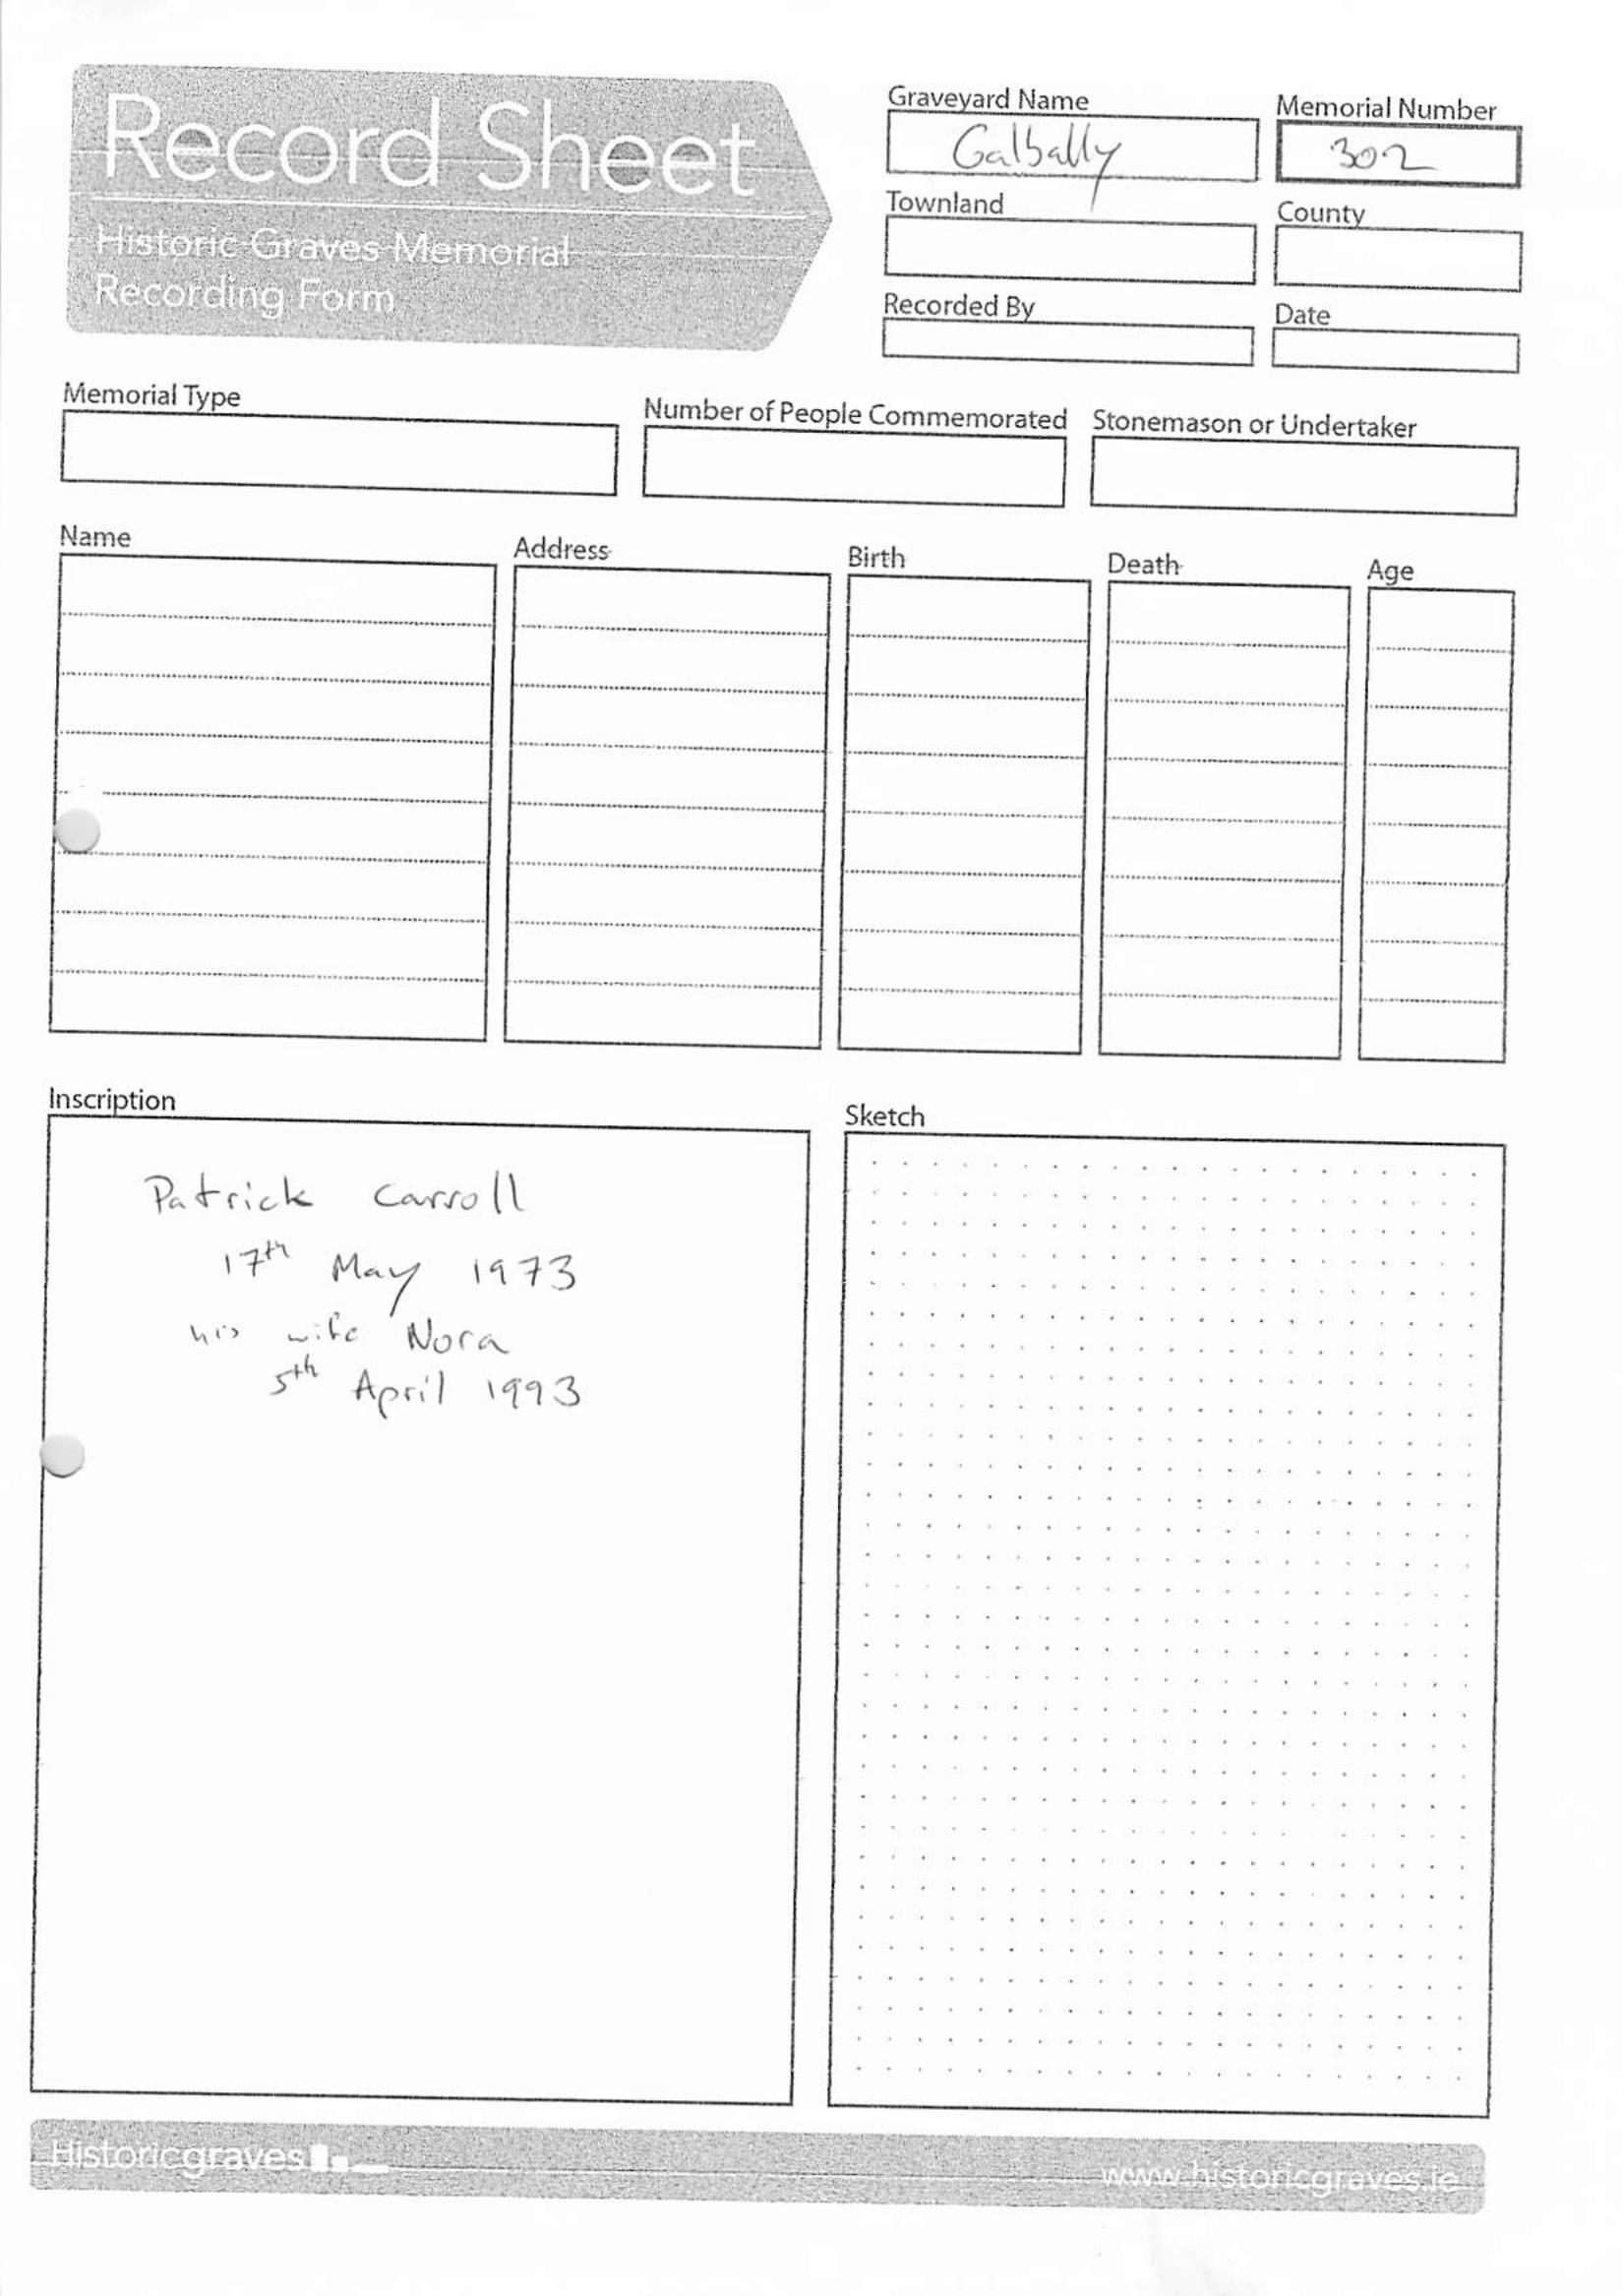 Record Sheet
Historic Graves Memorial
Recording Form
Graveyard Name
Galbally
Memorial Number
302
Townland
County
Recorded By
Date
Memorial Type
Number of People Commemorated
Stonemason or Undertaker
Name
Address
Birth
Death
Age
Inscription
Patrick Carroll
17th May 1973
his wife Nora
5th April 1993
Sketch
Historicgraves
www.historicgraves.ie